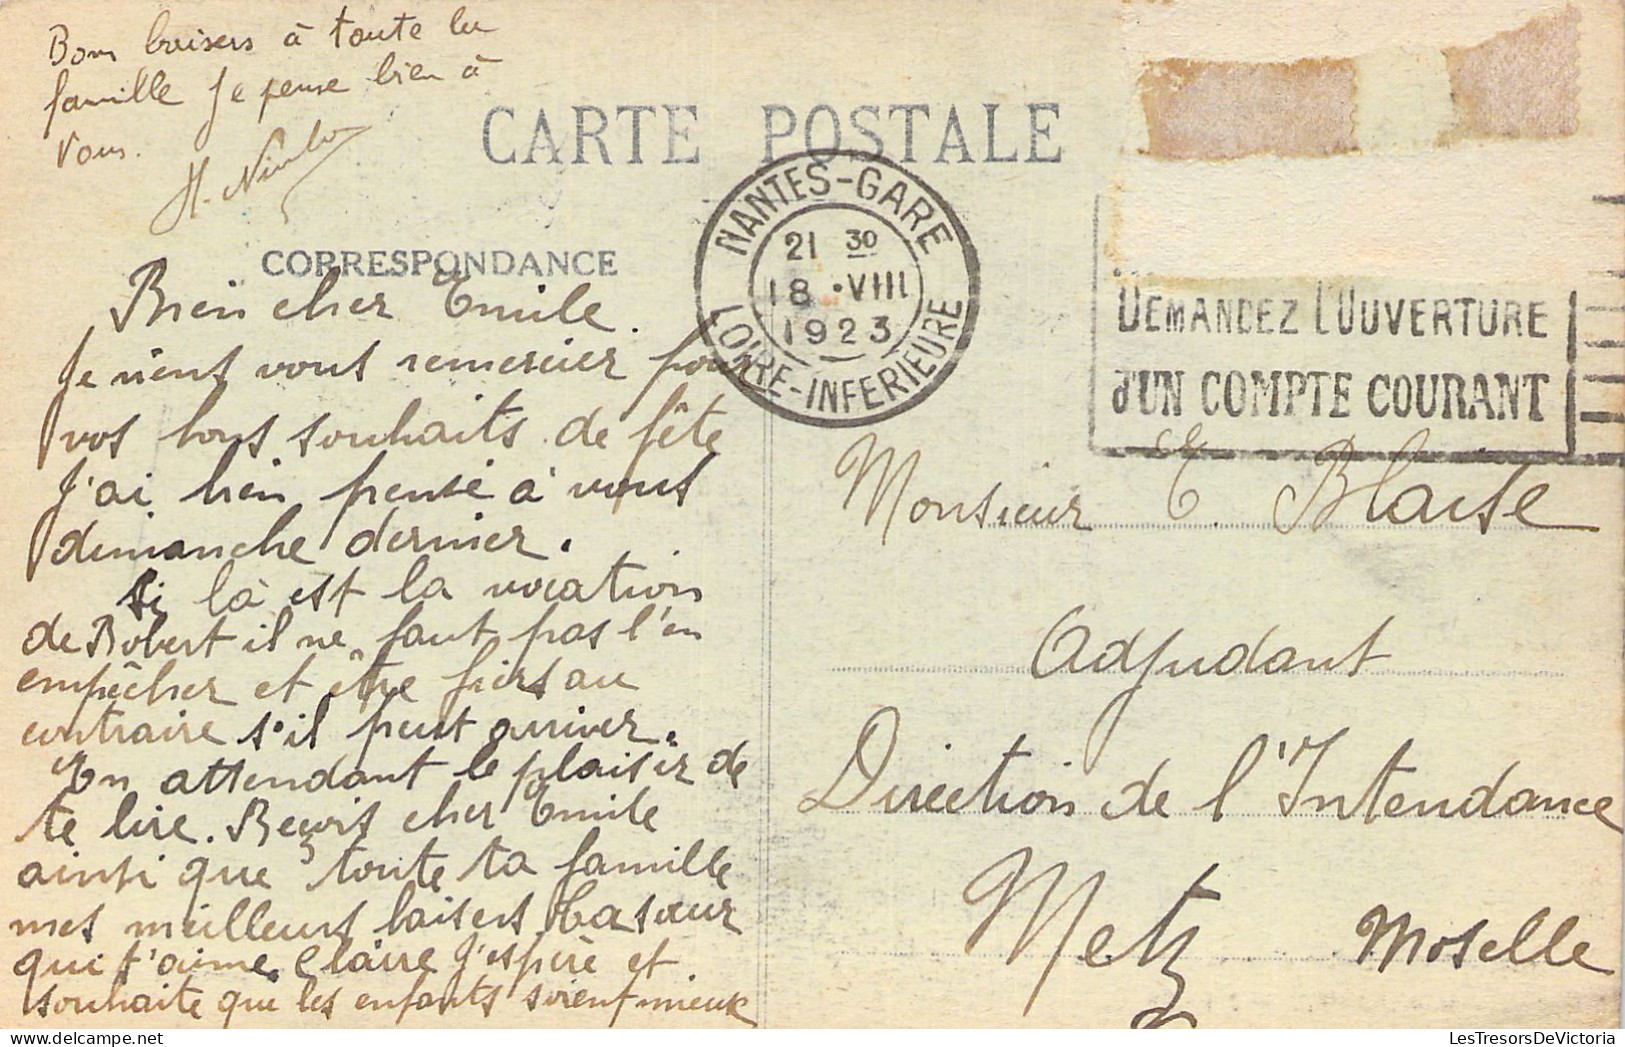 Bons baisers à toute la
famille Je pense bien à
vous.
CARTE POSTALE
NANTES-GARE
21 30
18 • VIII
1923
LOIRE-INFERIEURE
DEMANDEZ L'OUVERTURE
d'UN COMPTE COURANT
CORRESPONDANCE
Bien cher Emile.
Je vient vous remercier pour
vos bons souhaits de fête
J'ai bien pensé à vous
dimanche dernier.
Si là est la vocation
de Robert il ne faut pas l'en
empêcher et être fiers au
contraire s'il peut arriver.
En attendant le plaisir de
te lire. Reçois cher Emile
ainsi que toute ta famille
mes meilleurs baisers ta sœur
qui t'aime Claire J'espère et
souhaite que les enfants soient mieux
Monsieur E. Blaise
Adjudant
Direction de l'Intendance
Metz Moselle
LesTresorsDeVictoria